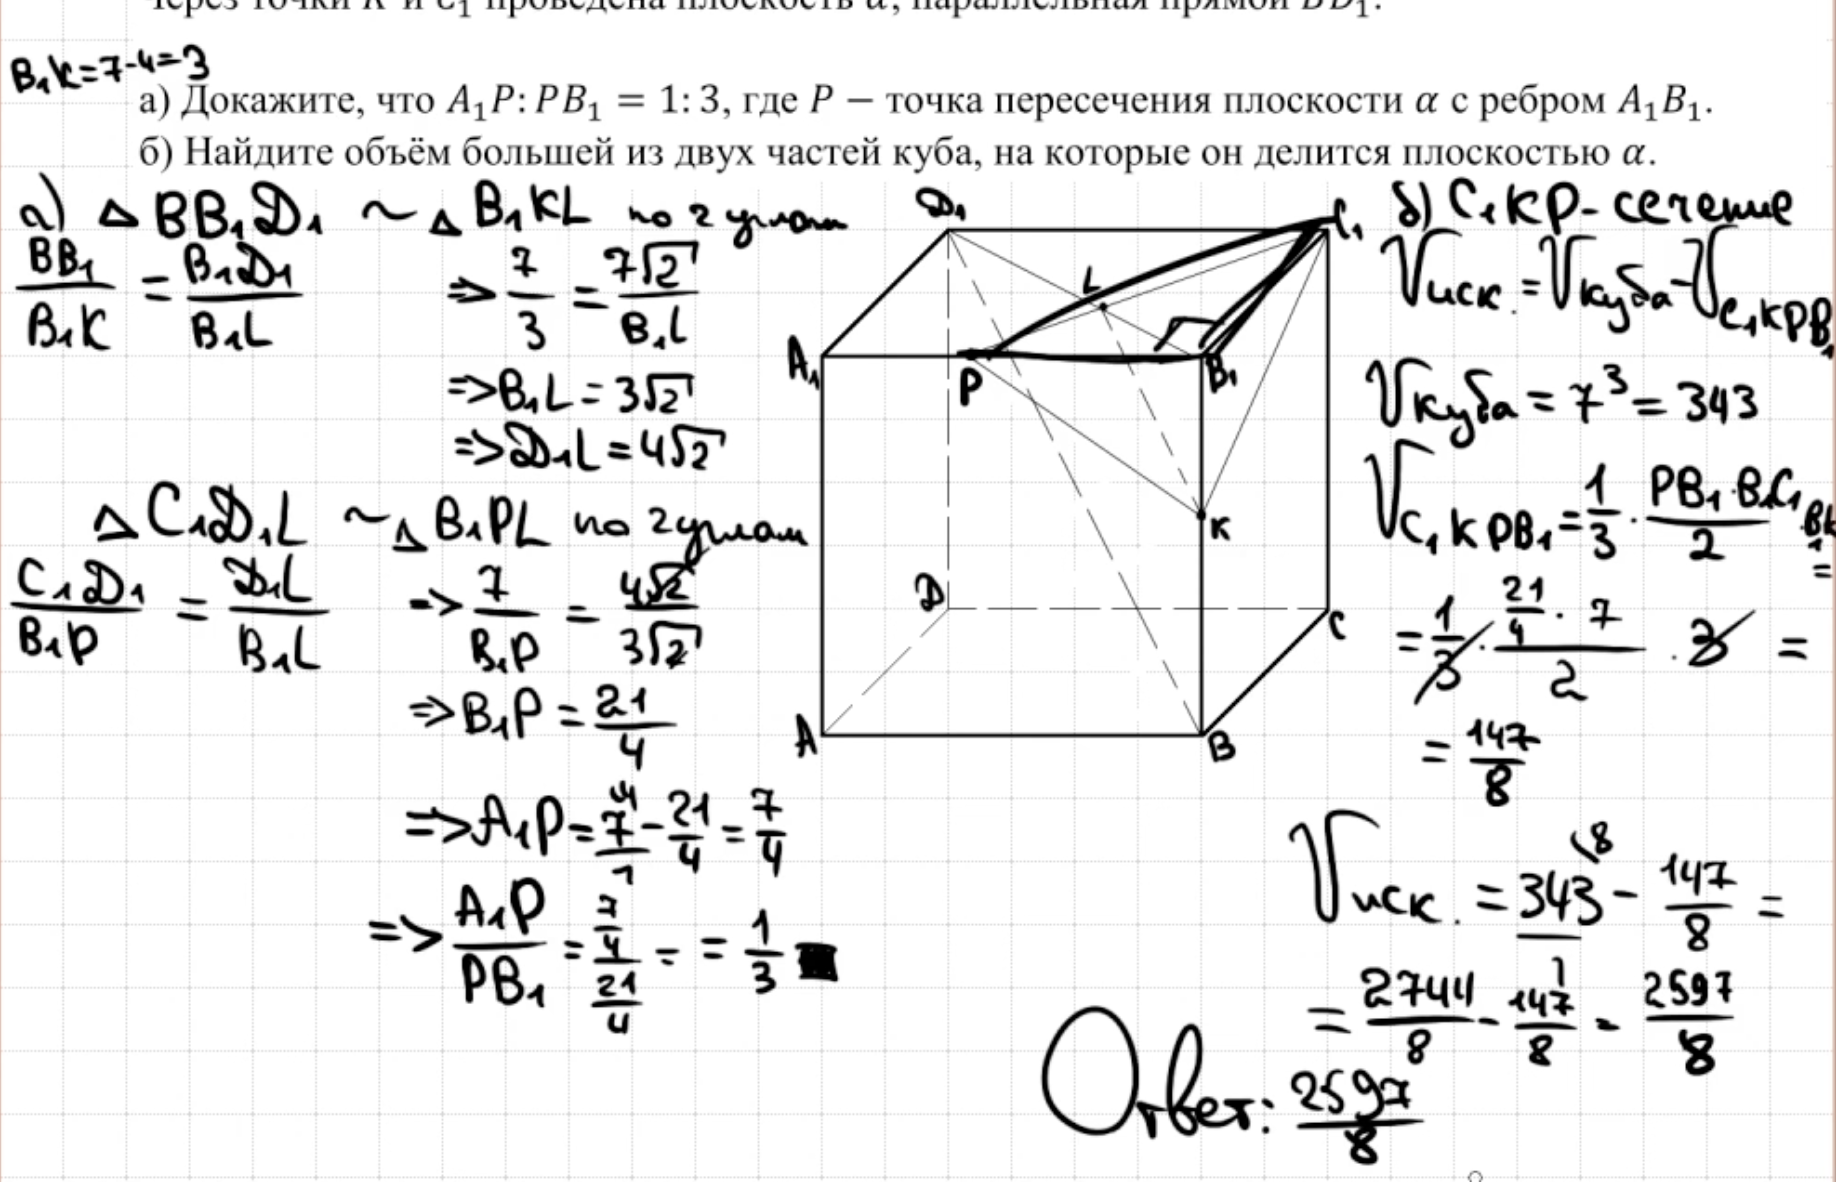 Через точки K и C₁ проведена плоскость α, параллельная прямой BD₁.
B₁K=7-4=3
а) Докажите, что A₁P: PB₁ = 1: 3, где P − точка пересечения плоскости α с ребром A₁B₁.
б) Найдите объём большей из двух частей куба, на которые он делится плоскостью α.
а) △ BB₁D₁ ~ △ B₁KL по 2 углам
BB₁/B₁K = B₁D₁/B₁L => 7/3 = 7√2/B₁L
=> B₁L = 3√2
=> D₁L = 4√2
△ C₁D₁L ~ △ B₁PL по 2 углам
C₁D₁/B₁P = D₁L/B₁L => 7/B₁P = 4√2/3√2
=> B₁P = 21/4
=> A₁P = 7/1 - 21/4 = 7/4
=> A₁P/PB₁ = 7/4/21/4 = = 1/3
D₁
C₁
L
A₁
P
B₁
K
D
C
A
B
б) C₁KP - сечение
Vиск. = Vкуба - VC₁KPB₁
Vкуба = 7³ = 343
VC₁KPB₁ = 1/3 · PB₁·B₁C₁/2 · B₁K =
= 1/3 · 21/4 · 7/2 · 3 =
= 147/8
Vиск. = 343/1 - 147/8 =
= 2744/8 - 147/8 = 2597/8
Ответ: 2597/8